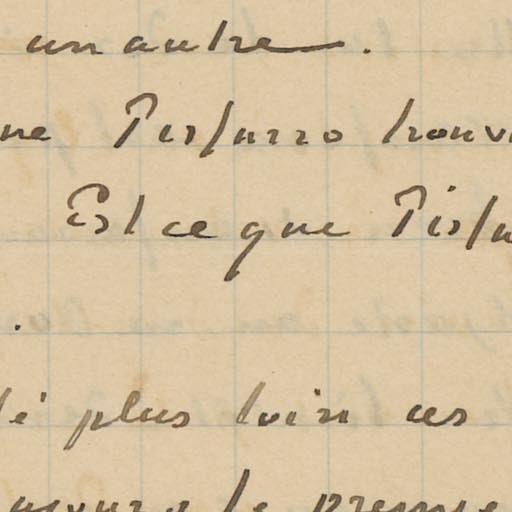 un autre.
ne Pissarro trouv
Est ce que Piss
.
plus loin ces
le premie